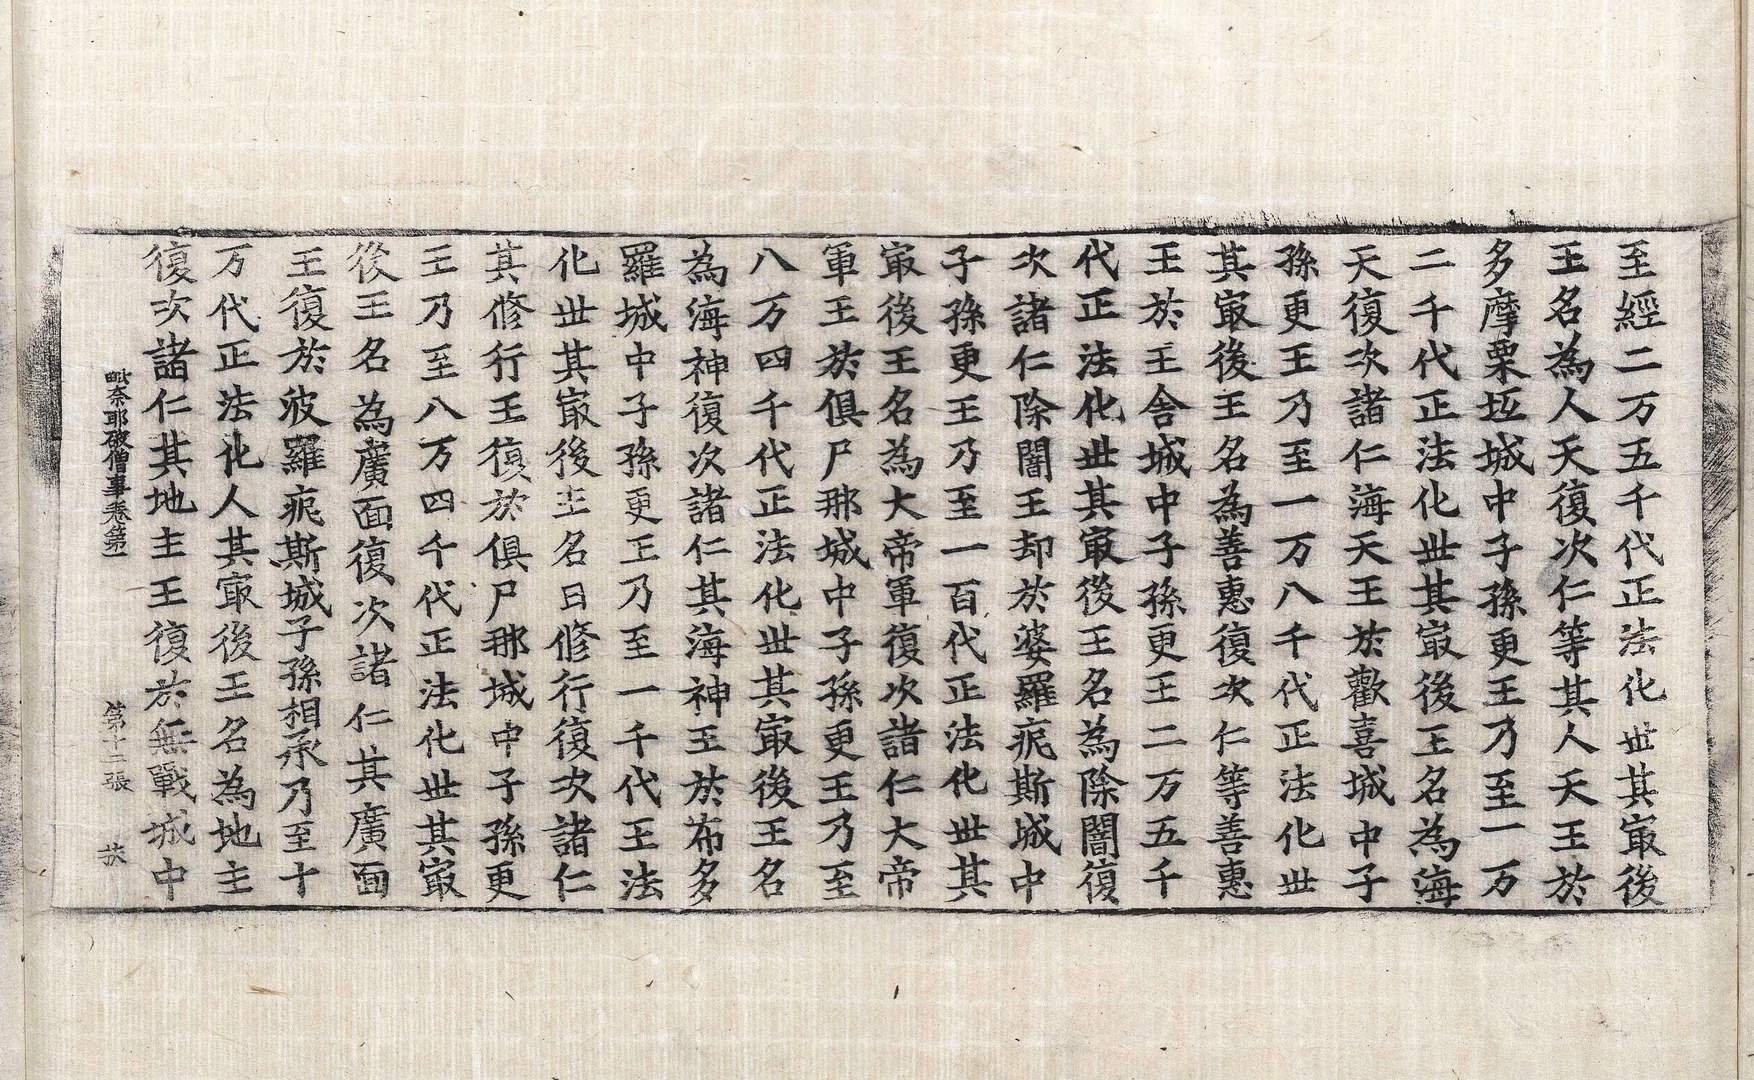 至經二万五千代正法化丗其㝡後
王名為人天復次仁等其人天王於
多摩栗坻城中子孫更王乃至一万
二千代正法化丗其㝡後王名為海
天復次諸仁海天王於歡喜城中子
孫更王乃至一万八千代正法化丗
其㝡後王名為善惠復次仁等善惠
王於王舍城中子孫更王二万五千
代正法化丗其㝡後王名為除闇復
次諸仁除闇王却於婆羅痆斯城中
子孫更王乃至一百代正法化丗其
㝡後王名為大帝軍復次諸仁大帝
軍王於俱尸那城中子孫更王乃至
八万四千代正法化丗其㝡後王名
為海神復次諸仁其海神王於布多
羅城中子孫更王乃至一千代王法
化丗其㝡後王名曰修行復次諸仁
其修行王復於俱尸那城中子孫更
王乃至八万四千代正法化丗其㝡
後王名為廣面復次諸仁其廣面
王復於波羅痆斯城子孫相承乃至十
万代正法化人其㝡後王名為地主
復次諸仁其地主王復於無戰城中
毗奈耶破僧事卷第一 第十二張 扶